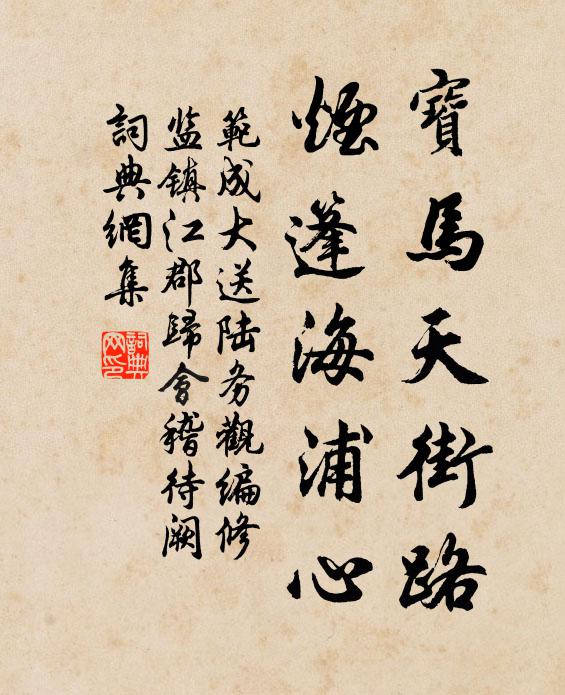 寶馬天街路
煙蓬海浦心
範成大送陆务觀编修
监镇江郡歸會稽待阙
詞典網集
詞典
网印